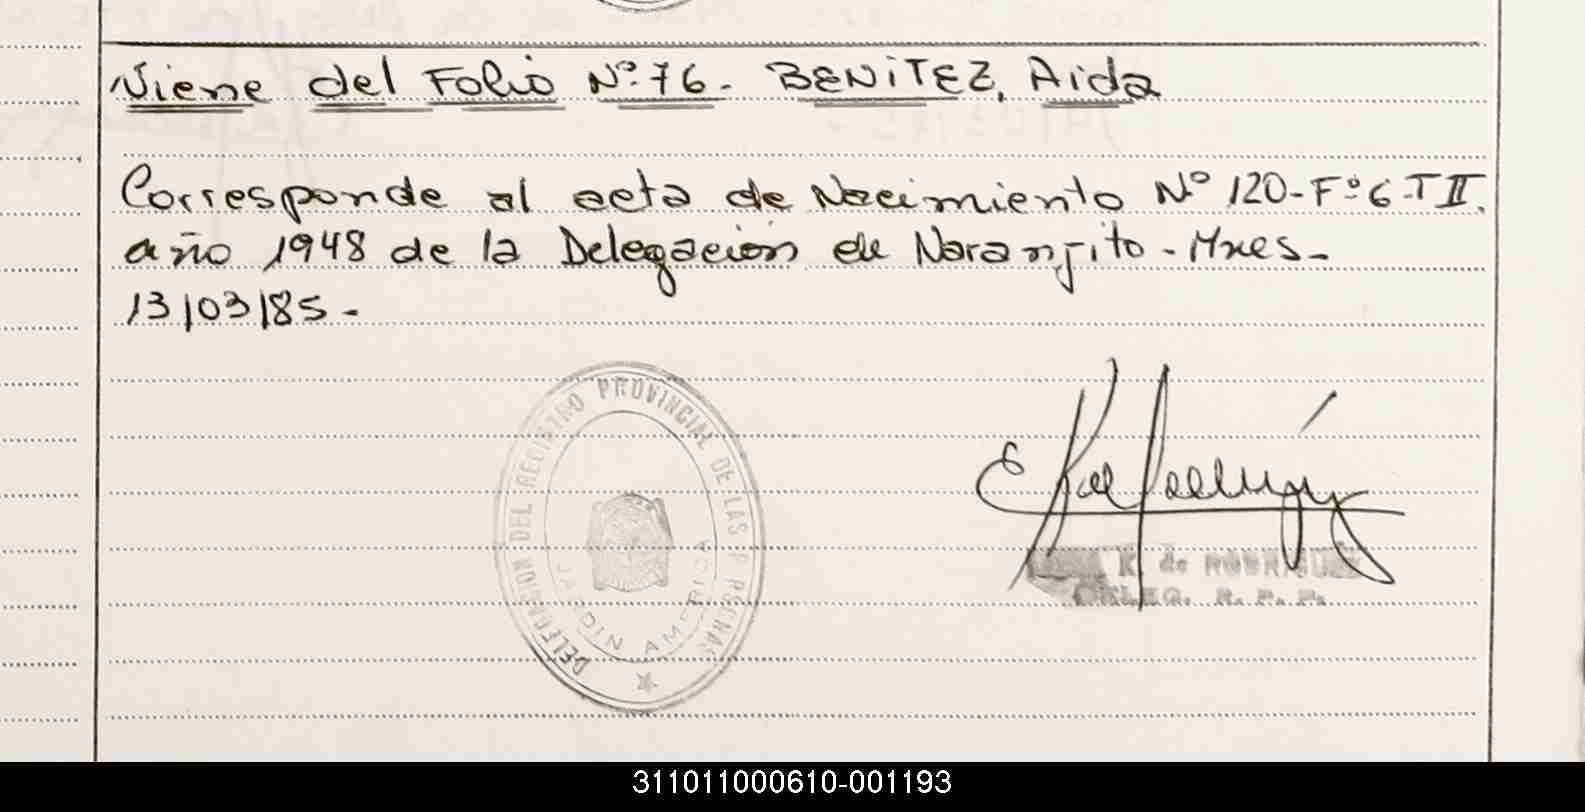 Viene del Folio Nº 76. BENiTEZ, Aida
Corresponde al acta de Nacimiento Nº 120-Fº 6-T II.
año 1948 de la Delegación de Naranjito - Mnes-
13/03/85-
DELEGACION DEL REGISTRO PROVINCIAL DE LAS PERSONAS
JARDIN AMERICA
K. de RODRIGUEZ
DELEG. R. P. P.
311011000610-001193